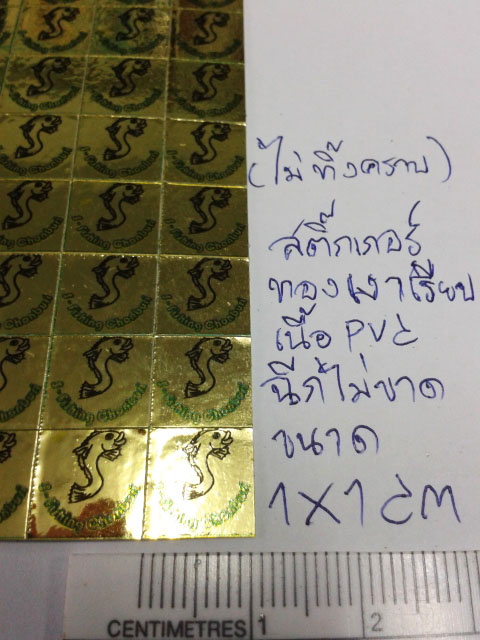 (ไม่ทิ้งคราบ)
สติ๊กเกอร์
ทองเงาเรียบ
เนื้อ PVC
ฉีกไม่ขาด
ขนาด
1X1 cm
J-Fishing Chonburi
CENTIMETRES 1 2